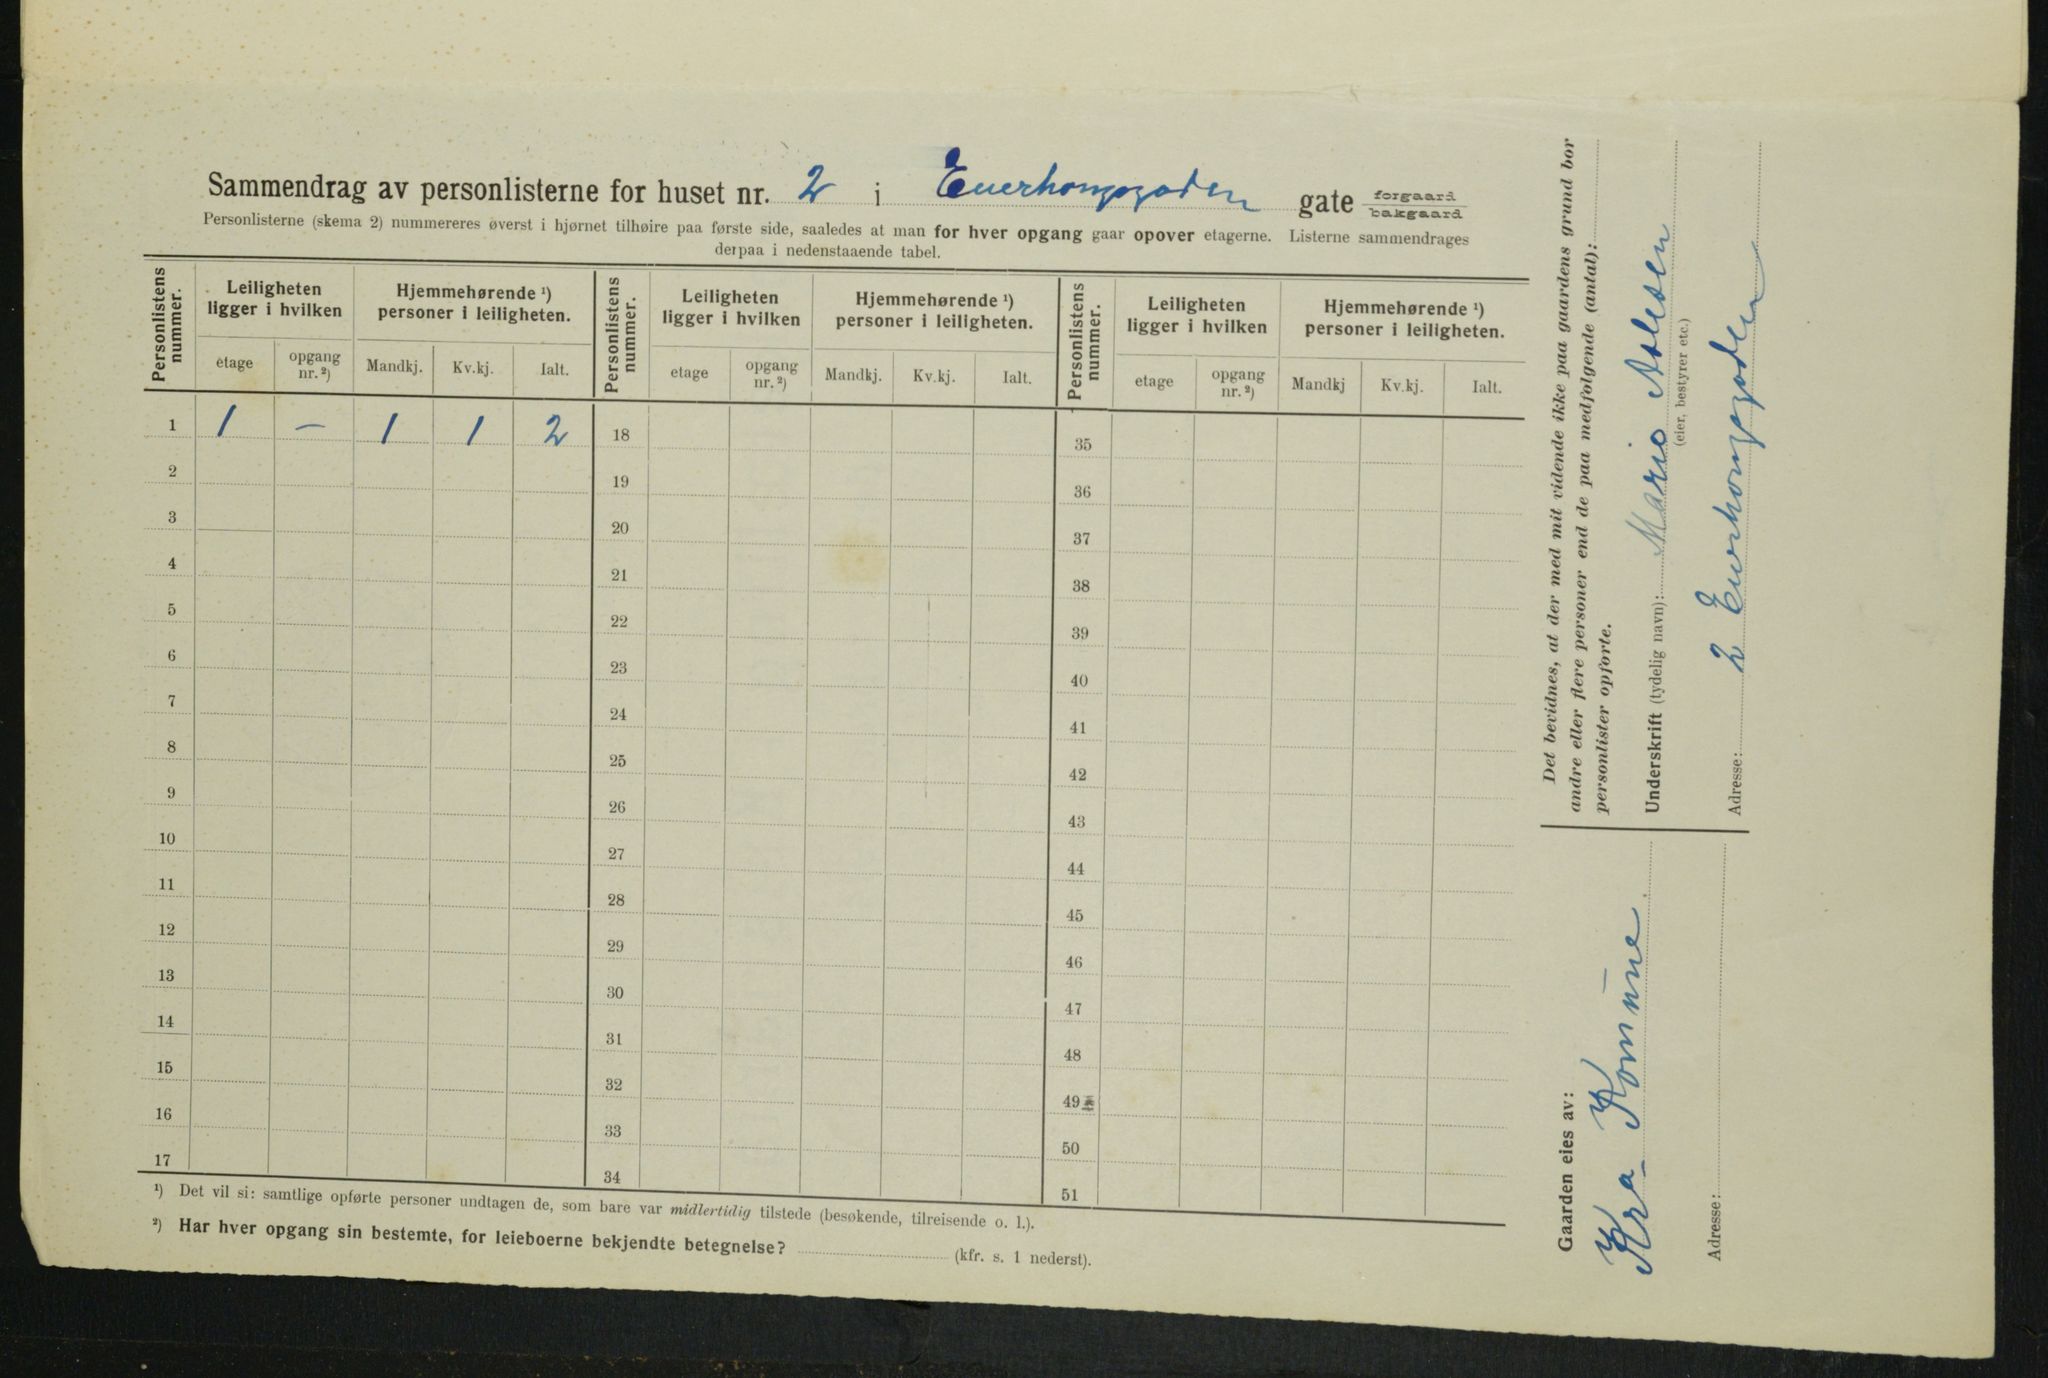 Sammendrag av personlisterne for huset nr. 2 i Enerhougsgaden gate forgaard bakgaard
Personlisterne (skema 2) nummereres øverst i hjørnet tilhøire paa første side, saaledes at man for hver opgang gaar opover etagerne. Listerne sammendrages
derpaa i nedenstaaende tabel.
Personlistens nummer. Leiligheten ligger i hvilken Hjemmehørende ¹) personer i leiligheten. Personlistens nummer. Leiligheten ligger i hvilken Hjemmehørende ¹) personer i leiligheten. Personlistens nummer. Leiligheten ligger i hvilken Hjemmehørende ¹) personer i leiligheten.
etage opgang nr. ²) Mandkj. Kv.kj. Ialt. etage opgang nr. ²) Mandkj. Kv.kj. Ialt. etage opgang nr. ²) Mandkj Kv.kj. Ialt.
1 1 – 1 1 2 18 35
2 19 36
3 20 37
4 21 38
5 22 39
6 23 40
7 24 41
8 25 42
9 26 43
10 27 44
11 28 45
12 29 46
13 30 47
14 31 48
15 32 49
16 33 50
17 34 51
¹) Det vil si: samtlige opførte personer undtagen de, som bare var midlertidig tilstede (besøkende, tilreisende o. l.).
²) Har hver opgang sin bestemte, for leieboerne bekjendte betegnelse? (kfr. s. 1 nederst).
Det bevidnes, at der med mit vidende ikke paa gaardens grund bor
andre eller flere personer end de paa medfølgende (antal):
personlister opførte.
Underskrift (tydelig navn): Marie
(eier, bestyrer etc.)
Adresse: 2 Enerhougsgaden
Gaarden eies av:
Kra Komune
Adresse: